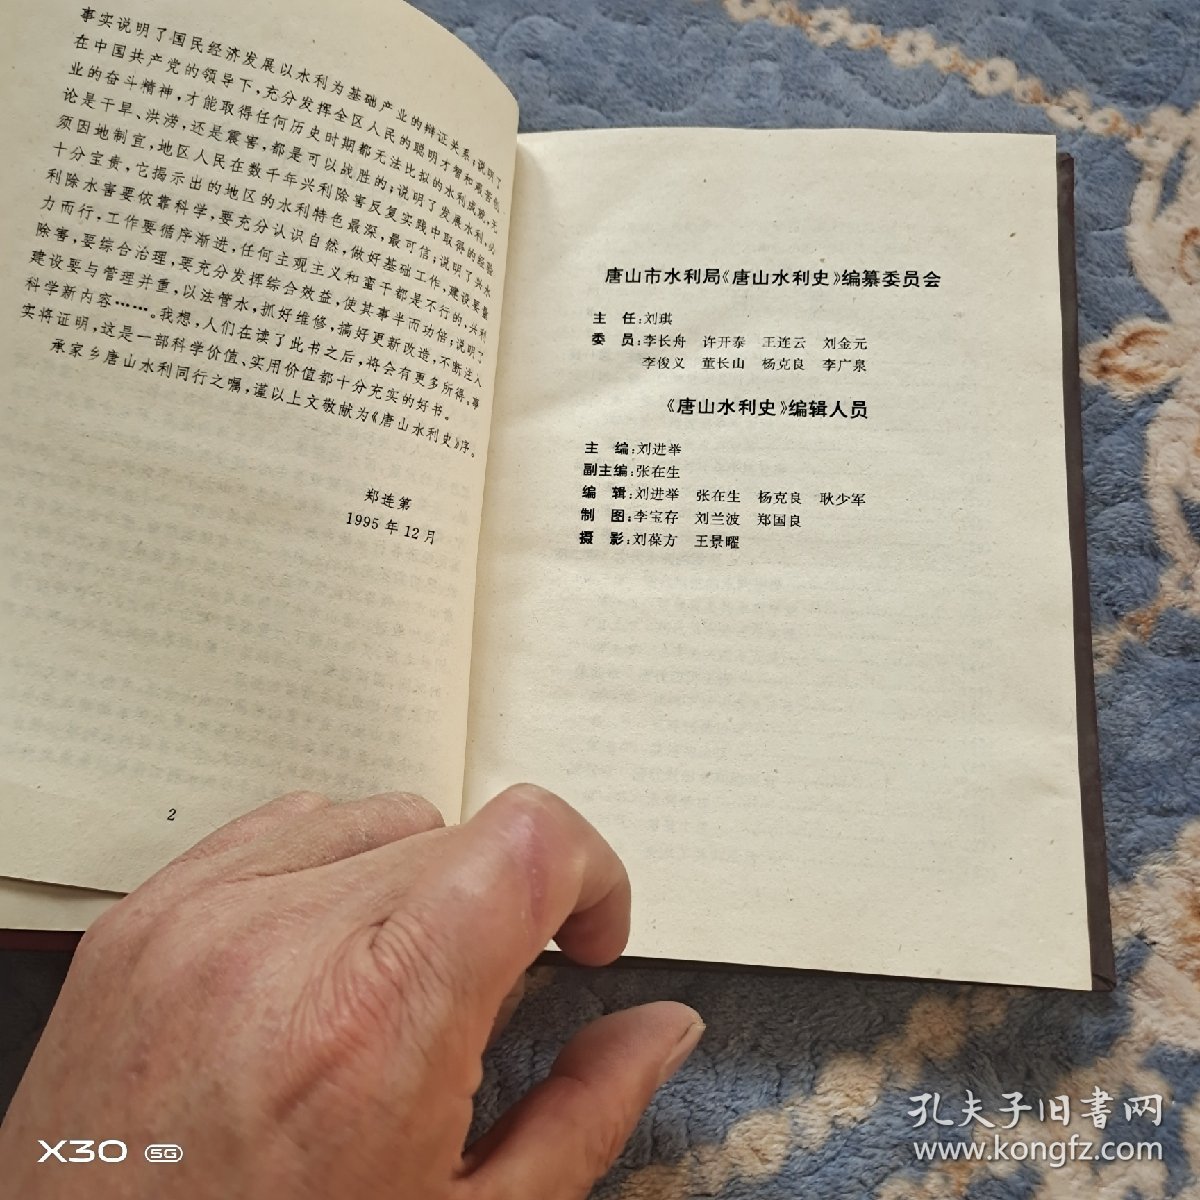 事实说明了国民经济发展以水利为基础产业的辩证关系;说明了
在中国共产党的领导下,充分发挥全区人民的聪明才智和艰苦创
业的奋斗精神,才能取得任何历史时期都无法比拟的水利成就,无
论是干旱、洪涝,还是震害,都是可以战胜的;说明了发展水利,必
须因地制宜,地区人民在数千年兴利除害反复实践中取得的经验
十分宝贵,它揭示出的地区的水利特色最深,最可信;说明了兴水
利除水害要依靠科学,要充分认识自然,做好基础工作,建设要量
力而行,工作要循序渐进,任何主观主义和蛮干都是不行的,兴利
除害,要综合治理,要充分发挥综合效益,使其事半而功倍;说明了
建设要与管理并重,以法管水,抓好维修,搞好更新改造,不断注入
科学新内容……。我想,人们在读了此书之后,将会有更多所得,事
实将证明,这是一部科学价值、实用价值都十分充实的好书。
承家乡唐山水利同行之嘱,谨以上文敬献为《唐山水利史》序。
郑连第
1995年12月
2
唐山市水利局《唐山水利史》编纂委员会
主 任:刘琪
委 员:李长舟 许开泰 王连云 刘金元
李俊义 董长山 杨克良 李广泉
《唐山水利史》编辑人员
主 编:刘进举
副主编:张在生
编 辑:刘进举 张在生 杨克良 耿少军
制 图:李宝存 刘兰波 郑国良
摄 影:刘葆方 王景曜
X30 5G
孔夫子旧书网
www.kongfz.com